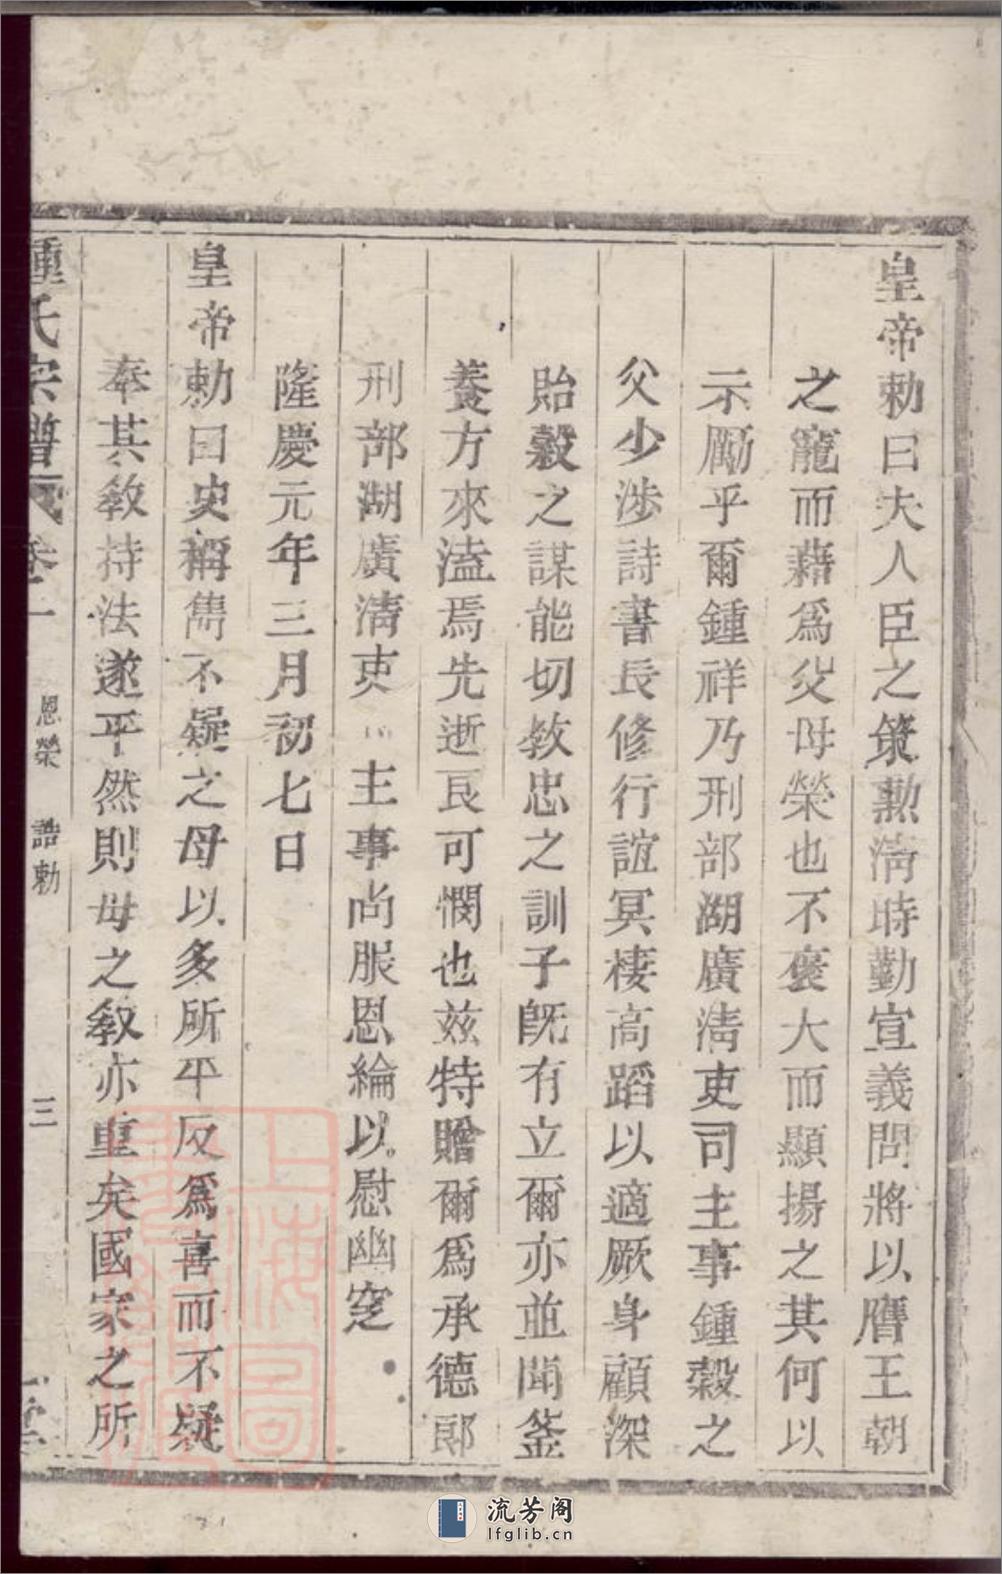 皇帝勅曰夫人臣之策勲淸時勤宣義問將以膺王朝
之寵而藉爲父母榮也不褒大而顯揚之其何以
示勵乎爾鍾祥乃刑部湖廣淸吏司主事鍾穀之
父少渉詩書長修行誼冥棲高蹈以適厥身顧深
貽穀之謀能切敎忠之訓子旣有立爾亦並聞釜
養方來溘焉先逝良可憫也玆特贈爾爲承德郎
刑部湖廣淸吏主事尚服恩綸以慰幽窀
隆慶元年三月初七日
皇帝勅曰史稱雋不疑之母以多所平反爲喜而不疑
奉其敎持法遂平然則母之敎亦重矣國家之所
鍾氏宗譜 卷一 恩榮 誥勅 三 堂
上海圖書館藏
流芳阁
lfglib.cn